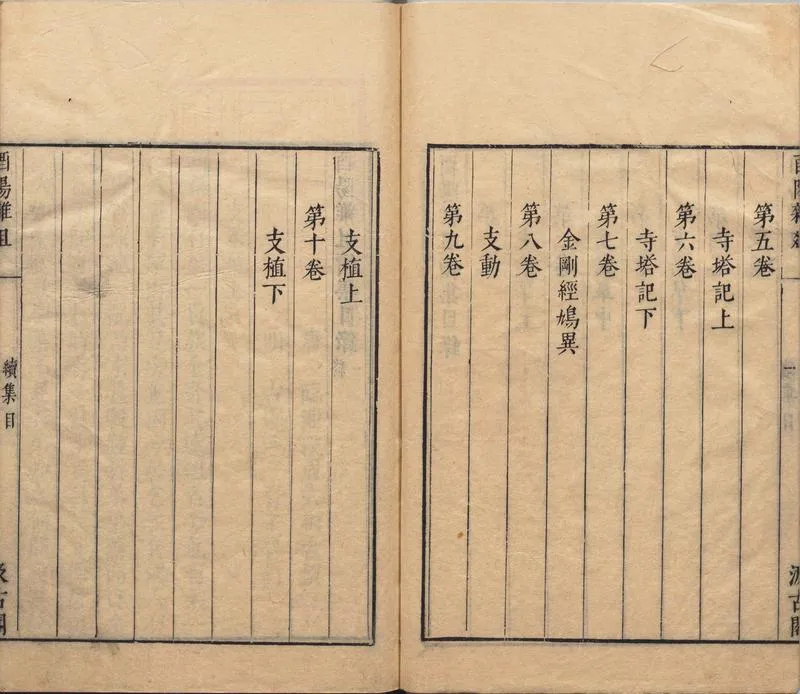 酉陽雜俎
一
汲古閣
第五卷
寺塔記上
第六卷
寺塔記下
第七卷
金剛經鳩異
第八卷
支動
第九卷
支植上
第十卷
支植下
酉陽雜俎
續集目
汲古閣